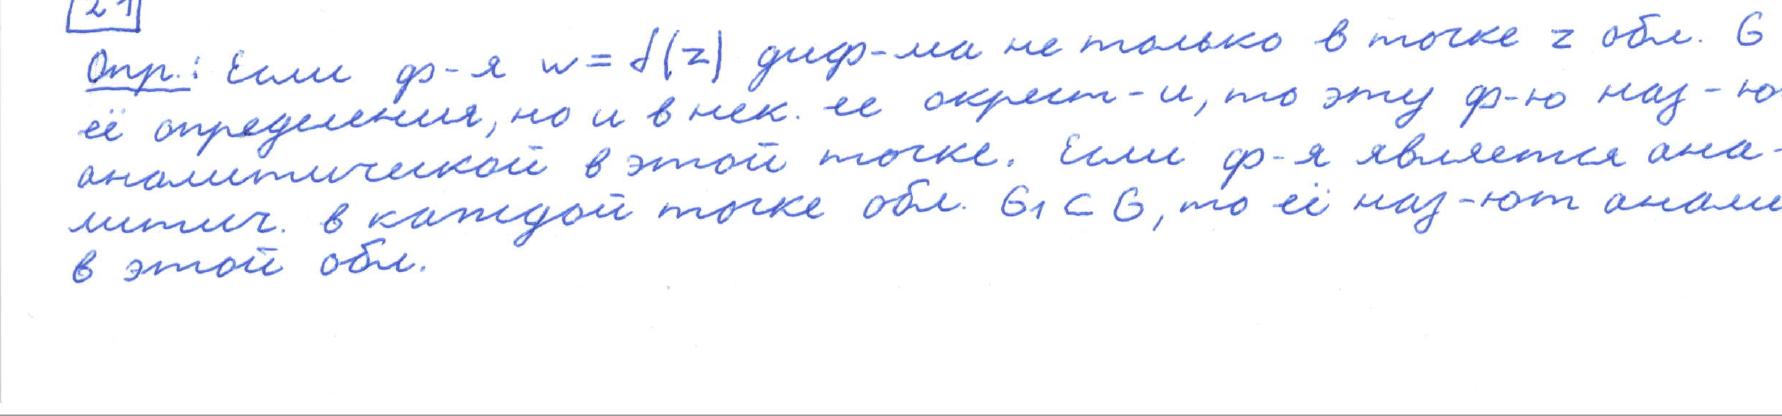 21
Опр.: Если ф-я w = f(z) диф-ма не только в точке z обл. G
её определения, но и в нек. ее окрест-и, то эту ф-ю наз-ю
аналитической в этой точке. Если ф-я является ана-
литич. в каждой точке обл. G₁ ⊂ G, то её наз-ют анали
в этой обл.